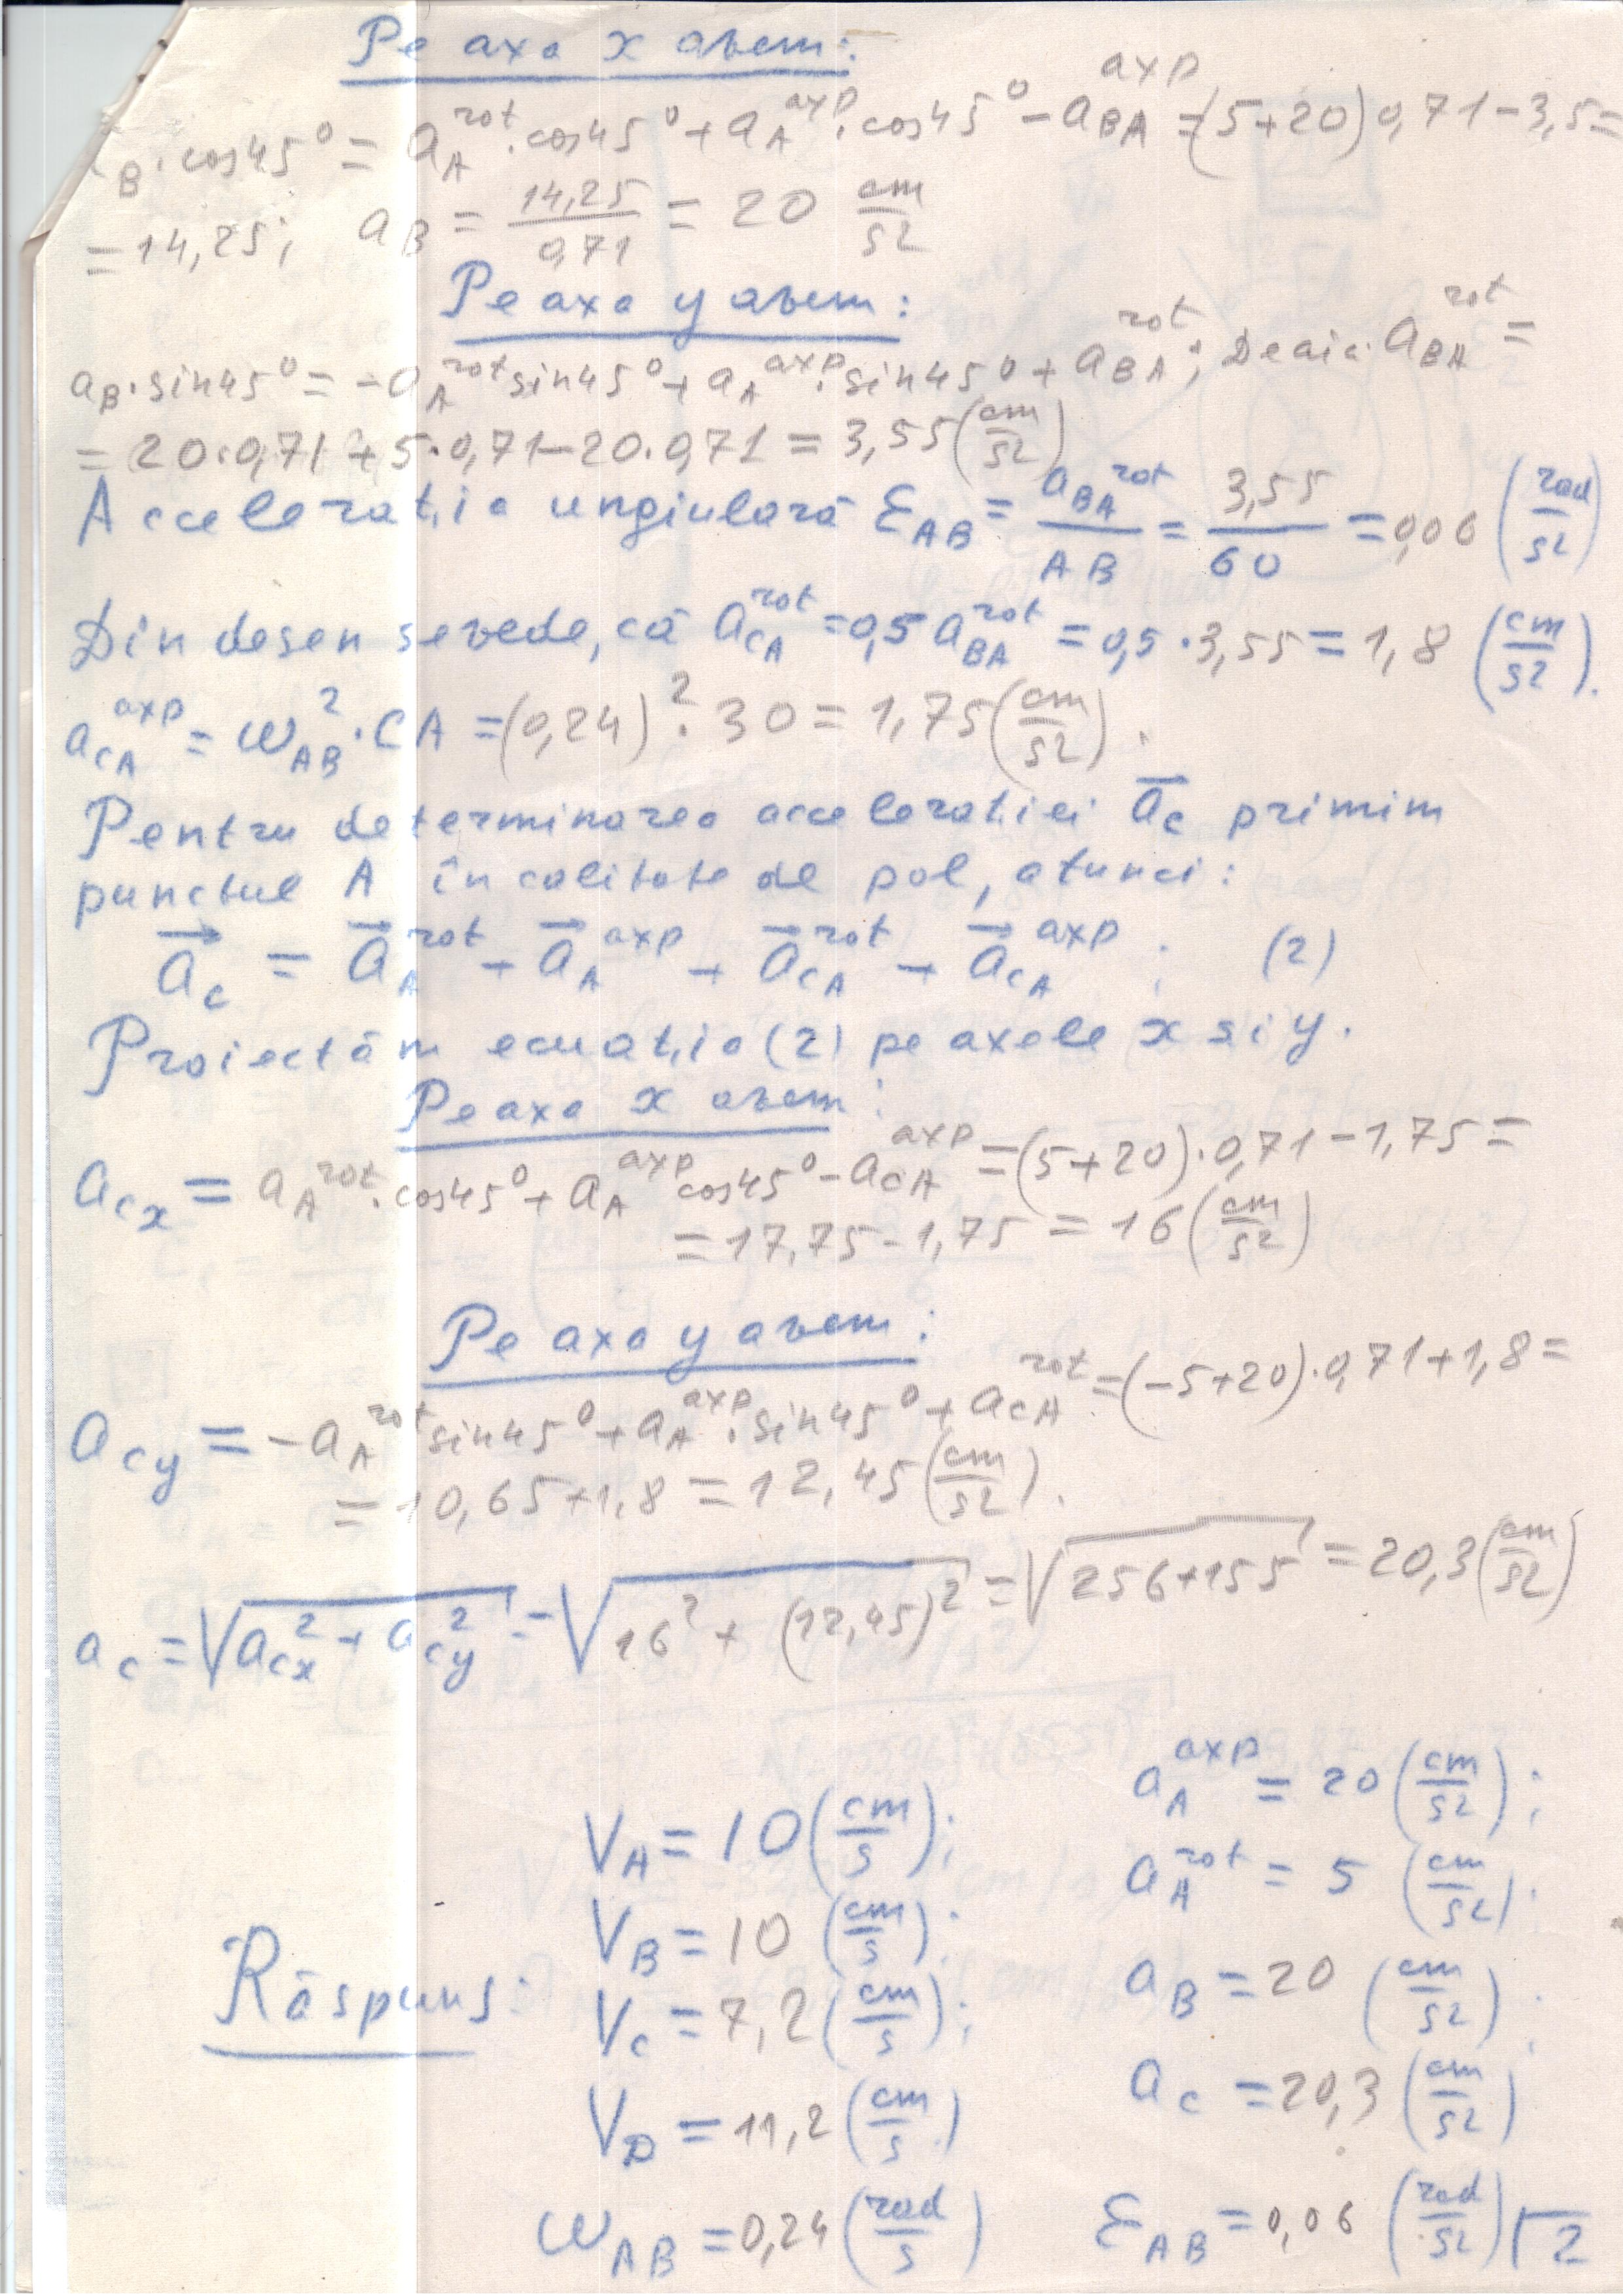 Pe axa x avem:
B · cos45° = a_A^rot · cos45° + a_A^axp · cos45° - a_BA^axp = (5+20) 0,71 - 3,5 =
= 14,25; a_B = 14,25/0,71 = 20 cm/s2
Pe axa y avem:
a_B · sin45° = - a_A^rot sin45° + a_A^axp · sin45° + a_BA^rot; Deaici a_BA^rot =
= 20·0,71 + 5·0,71 - 20·0,71 = 3,55 (cm/s2)
Accelerația unghiulară ε_AB = a_BA^rot/AB = 3,55/60 = 0,06 (rad/s2)
Din desen se vede, că a_CA^rot = 0,5 a_BA^rot = 0,5 · 3,55 = 1,8 (cm/s2).
a_CA^axp = ω_AB^2 · CA = (0,24)^2 · 30 = 1,75 (cm/s2).
Pentru determinarea accelerației a⃗_c primim
punctul A în calitate de pol, atunci:
a⃗_c = a⃗_A^rot + a⃗_A^axp + a⃗_CA^rot + a⃗_CA^axp; (2)
Proiectăm ecuația (2) pe axele x și y.
Pe axa x avem:
a_cx = a_A^rot · cos45° + a_A^axp cos45° - a_CA^axp = (5+20) · 0,71 - 1,75 =
= 17,75 - 1,75 = 16 (cm/s2)
Pe axa y avem:
a_cy = - a_A^rot sin45° + a_A^axp · sin45° + a_CA^rot = (-5+20) · 0,71 + 1,8 =
= 10,65 + 1,8 = 12,45 (cm/s2).
a_c = √(a_cx^2 + a_cy^2) = √(16^2 + (12,45)^2) = √(256+155) = 20,3 (cm/s2)
Răspuns:
V_A = 10 (cm/s);
V_B = 10 (cm/s);
V_c = 7,2 (cm/s);
V_D = 11,2 (cm/s)
ω_AB = 0,24 (rad/s)
a_A^axp = 20 (cm/s2);
a_A^rot = 5 (cm/s2);
a_B = 20 (cm/s2);
a_c = 20,3 (cm/s2)
ε_AB = 0,06 (rad/s2)
2